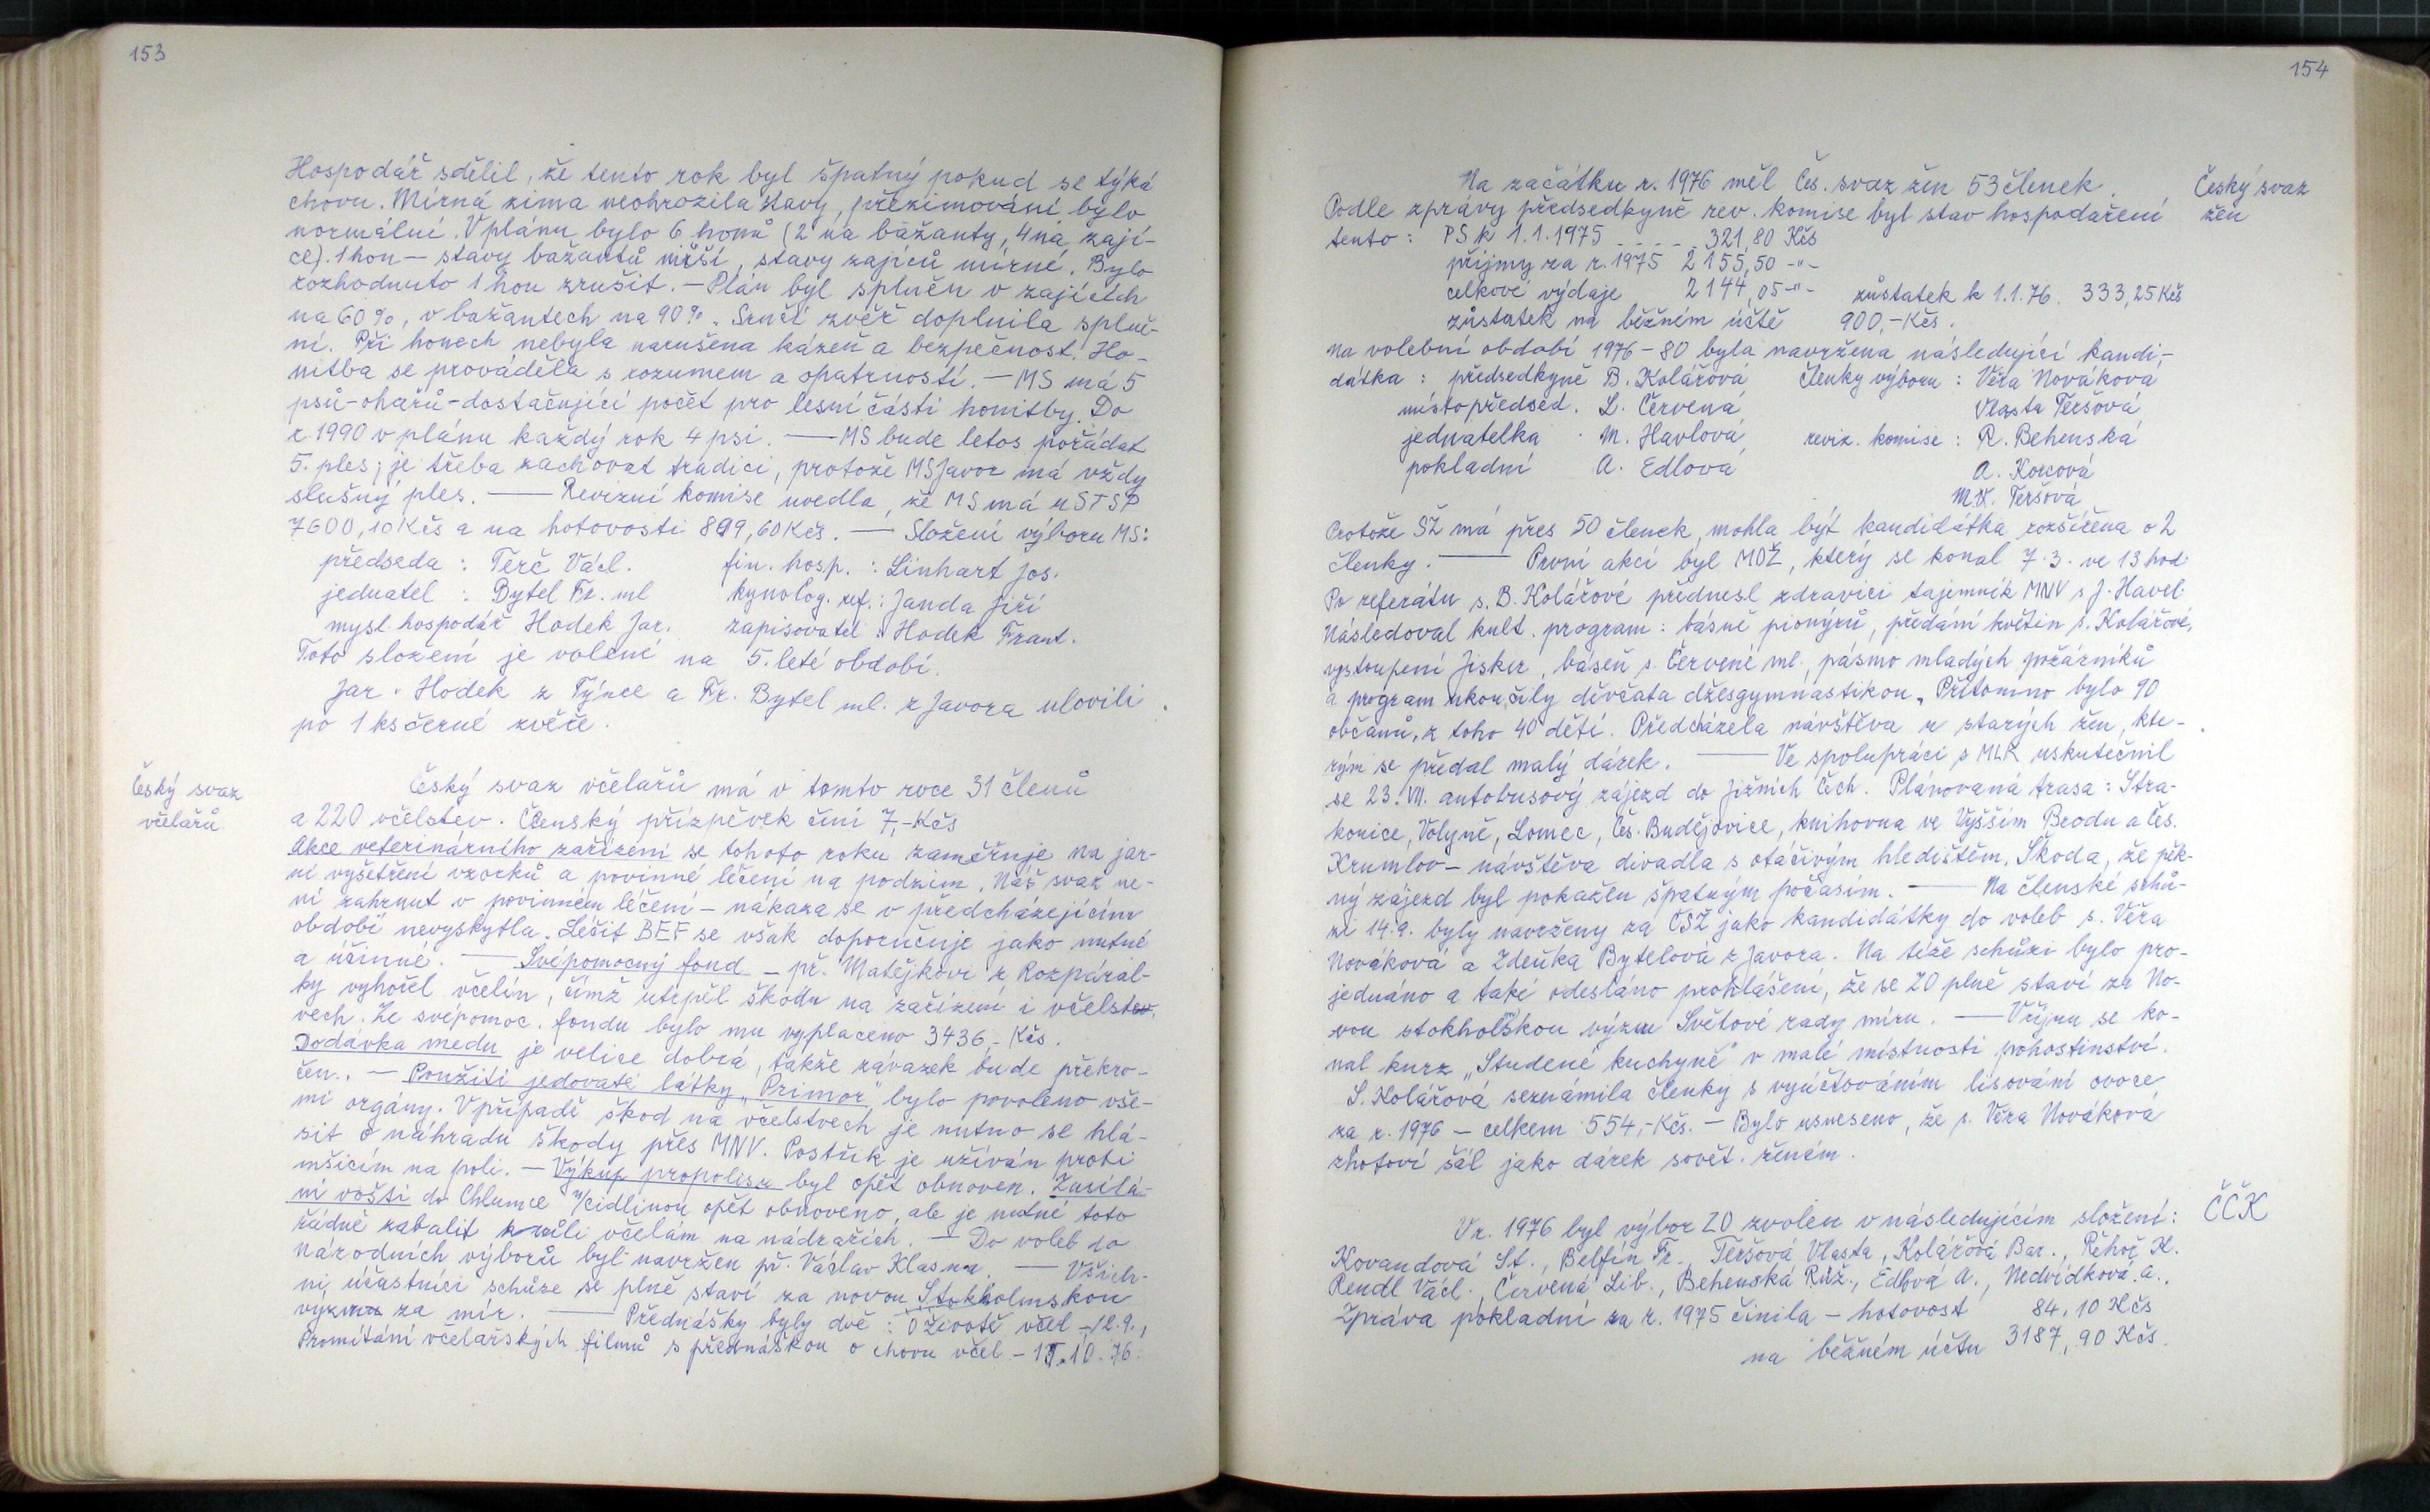 153
Hospodář sdělil, že tento rok byl špatný pokud se týká
chovu. Mírná zima neohrozila stavy, přezimování bylo
normální. V plánu bylo 6 honů (2 na bažanty, 4 na zají-
ce). 1 hon — stavy bažantů nižší, stavy zajíců mírné. Bylo
rozhodnuto 1 hon zrušit. — Plán byl splněn v zajících
na 60%, v bažantech na 90%. Srnčí zvěř doplnila splně-
ní. Při honech nebyla narušena kázeň a bezpečnost. Ho-
nitba se prováděla s rozumem a opatrností. — MS má 5
psů-ohařů-dostačující počet pro lesní části honitby. Do
r. 1990 v plánu každý rok 4 psi. — MS bude letos pořádat
5. ples; je třeba zachovat tradici, protože MS Javor má vždy
slušný ples. — Revizní komise uvedla, že MS má u STSP
7600,10 Kčs a na hotovosti 899,60 Kčs. — Složení výboru MS:
předseda : Terč Václ. fin. hosp. : Linhart Jos.
jednatel : Bytel Fr. ml kynolog. ref. : Janda Jiří
mysl. hospodář Hodek Jar. zapisovatel : Hodek Frant.
Toto složení je volené na 5. leté období.
Jar. Hodek z Týnce a Fr. Bytel ml. z Javora ulovili
po 1 ks černé zvěře.
Český svaz
včelařů
Český svaz včelařů má v tomto roce 31 členů
a 220 včelstev. Členský příspěvek činí 7,-Kčs
Akce veterinárního zařízení se tohoto roku zaměřuje na jar-
ní vyšetření vzorků a povinné léčení na podzim. Náš svaz ne-
ní zahrnut v povinném léčení — nákaza se v předcházejícím
období nevyskytla. Léčit BEF se však doporučuje jako nutné
a účinné. — Svépomocný fond — př. Matějkovi z Rozpáral-
ky vyhořel včelín, čímž utrpěl škodu na zařízení i včelst-
vech. Ze svépomoc. fondu bylo mu vyplaceno 3436,- Kčs.
Dodávka medu je velice dobrá, takže závazek bude překro-
čen. — Použití jedovaté látky „Primor" bylo povoleno vše-
mi orgány. V případě škod na včelstvech je nutno se hlá-
sit o náhradu škody přes MNV. Postřik je užíván proti
mšicím na poli. — Výkup propolisu byl opět obnoven. Zasílá-
ní voští do Chlumce n/Cidlinou opět obnoveno, ale je nutné toto
řádně zabalit kvůli včelám na nádražích. — Do voleb do
národních výborů byl navržen př. Václav Klasna. — Všich-
ni účastníci schůze se plně staví za novou Stokholmskou
výzvu za mír. — Přednášky byly dvě : O životě včel — 12.9.,
Promítání včelařských filmů s přednáškou o chovu včel — 17.10.76.
154
Český svaz
žen
Na začátku r. 1976 měl Čes. svaz žen 53 členek.
Podle zprávy předsedkyně rev. komise byl stav hospodaření
tento : PS k 1.1.1975 - - - - - 321,80 Kčs
příjmy za r. 1975 2155,50 -"-
celkové výdaje 2144,05 -"- zůstatek k 1.1.76. 333,25 Kčs
zůstatek na běžném účtě 900,-Kčs.
Na volební období 1976-80 byla navržena následující kandi-
dátka : předsedkyně B. Kolářová členky výboru : Věra Nováková
místopředsed. L. Červená Vlasta Teršová
jednatelka . M. Havlová reviz. komise : R. Behenská
pokladní A. Edlová A. Korcová
M. Teršová
Protože SŽ má přes 50 členek, mohla být kandidátka rozšířena o 2
členky. — První akcí byl MDŽ, který se konal 7.3. ve 13 hod.
Po referátu s. B. Kolářové přednesl zdravici tajemník MNV s. J. Havel.
Následoval kult. program : básně pionýrů, předání květin s. Kolářové,
vystoupení Jisker, báseň s. Červené ml., pásmo mladých požárníků
a program ukončily děvčata džesgymnastikou. Přítomno bylo 90
občanů, z toho 40 dětí. Předcházela návštěva u starých žen, kte-
rým se předal malý dárek. — Ve spolupráci s MLK uskutečnil
se 23. VII. autobusový zájezd do Jižních Čech. Plánovaná trasa : Stra-
konice, Volyně, Lomec, Čes. Budějovice, knihovna ve Vyšším Brodu a Čes.
Krumlov — návštěva divadla s otáčivým hledištěm. Škoda, že pěk-
ný zájezd byl pokažen špatným počasím. — Na členské schů-
zi 14.9. byly navrženy za ČSŽ jako kandidátky do voleb s. Věra
Nováková a Zdeňka Bytelová z Javora. Na téže schůzi bylo pro-
jednáno a také odesláno prohlášení, že se ZO plně staví za No-
vou stokholmskou výzvu Světové rady míru. — V říjnu se ko-
nal kurz „Studené kuchyně" v malé místnosti pohostinství.
S. Kolářová seznámila členky s vyúčtováním lisování ovoce
za r. 1976 — celkem 554,-Kčs. — Bylo usneseno, že s. Věra Nováková
zhotoví šál jako dárek sovět. ženám.
ČČK
V r. 1976 byl výbor ZO zvolen v následujícím složení :
Kovandová St., Belfín Fr., Teršová Vlasta, Kolářová Bar., Řehoř K.
Rendl Václ., Červená Lib., Behenská Růž., Edlová A., Nedvídková A.,
Zpráva pokladní za r. 1975 činila — hotovost 84,10 Kčs
na běžném účtu 3187,90 Kčs.